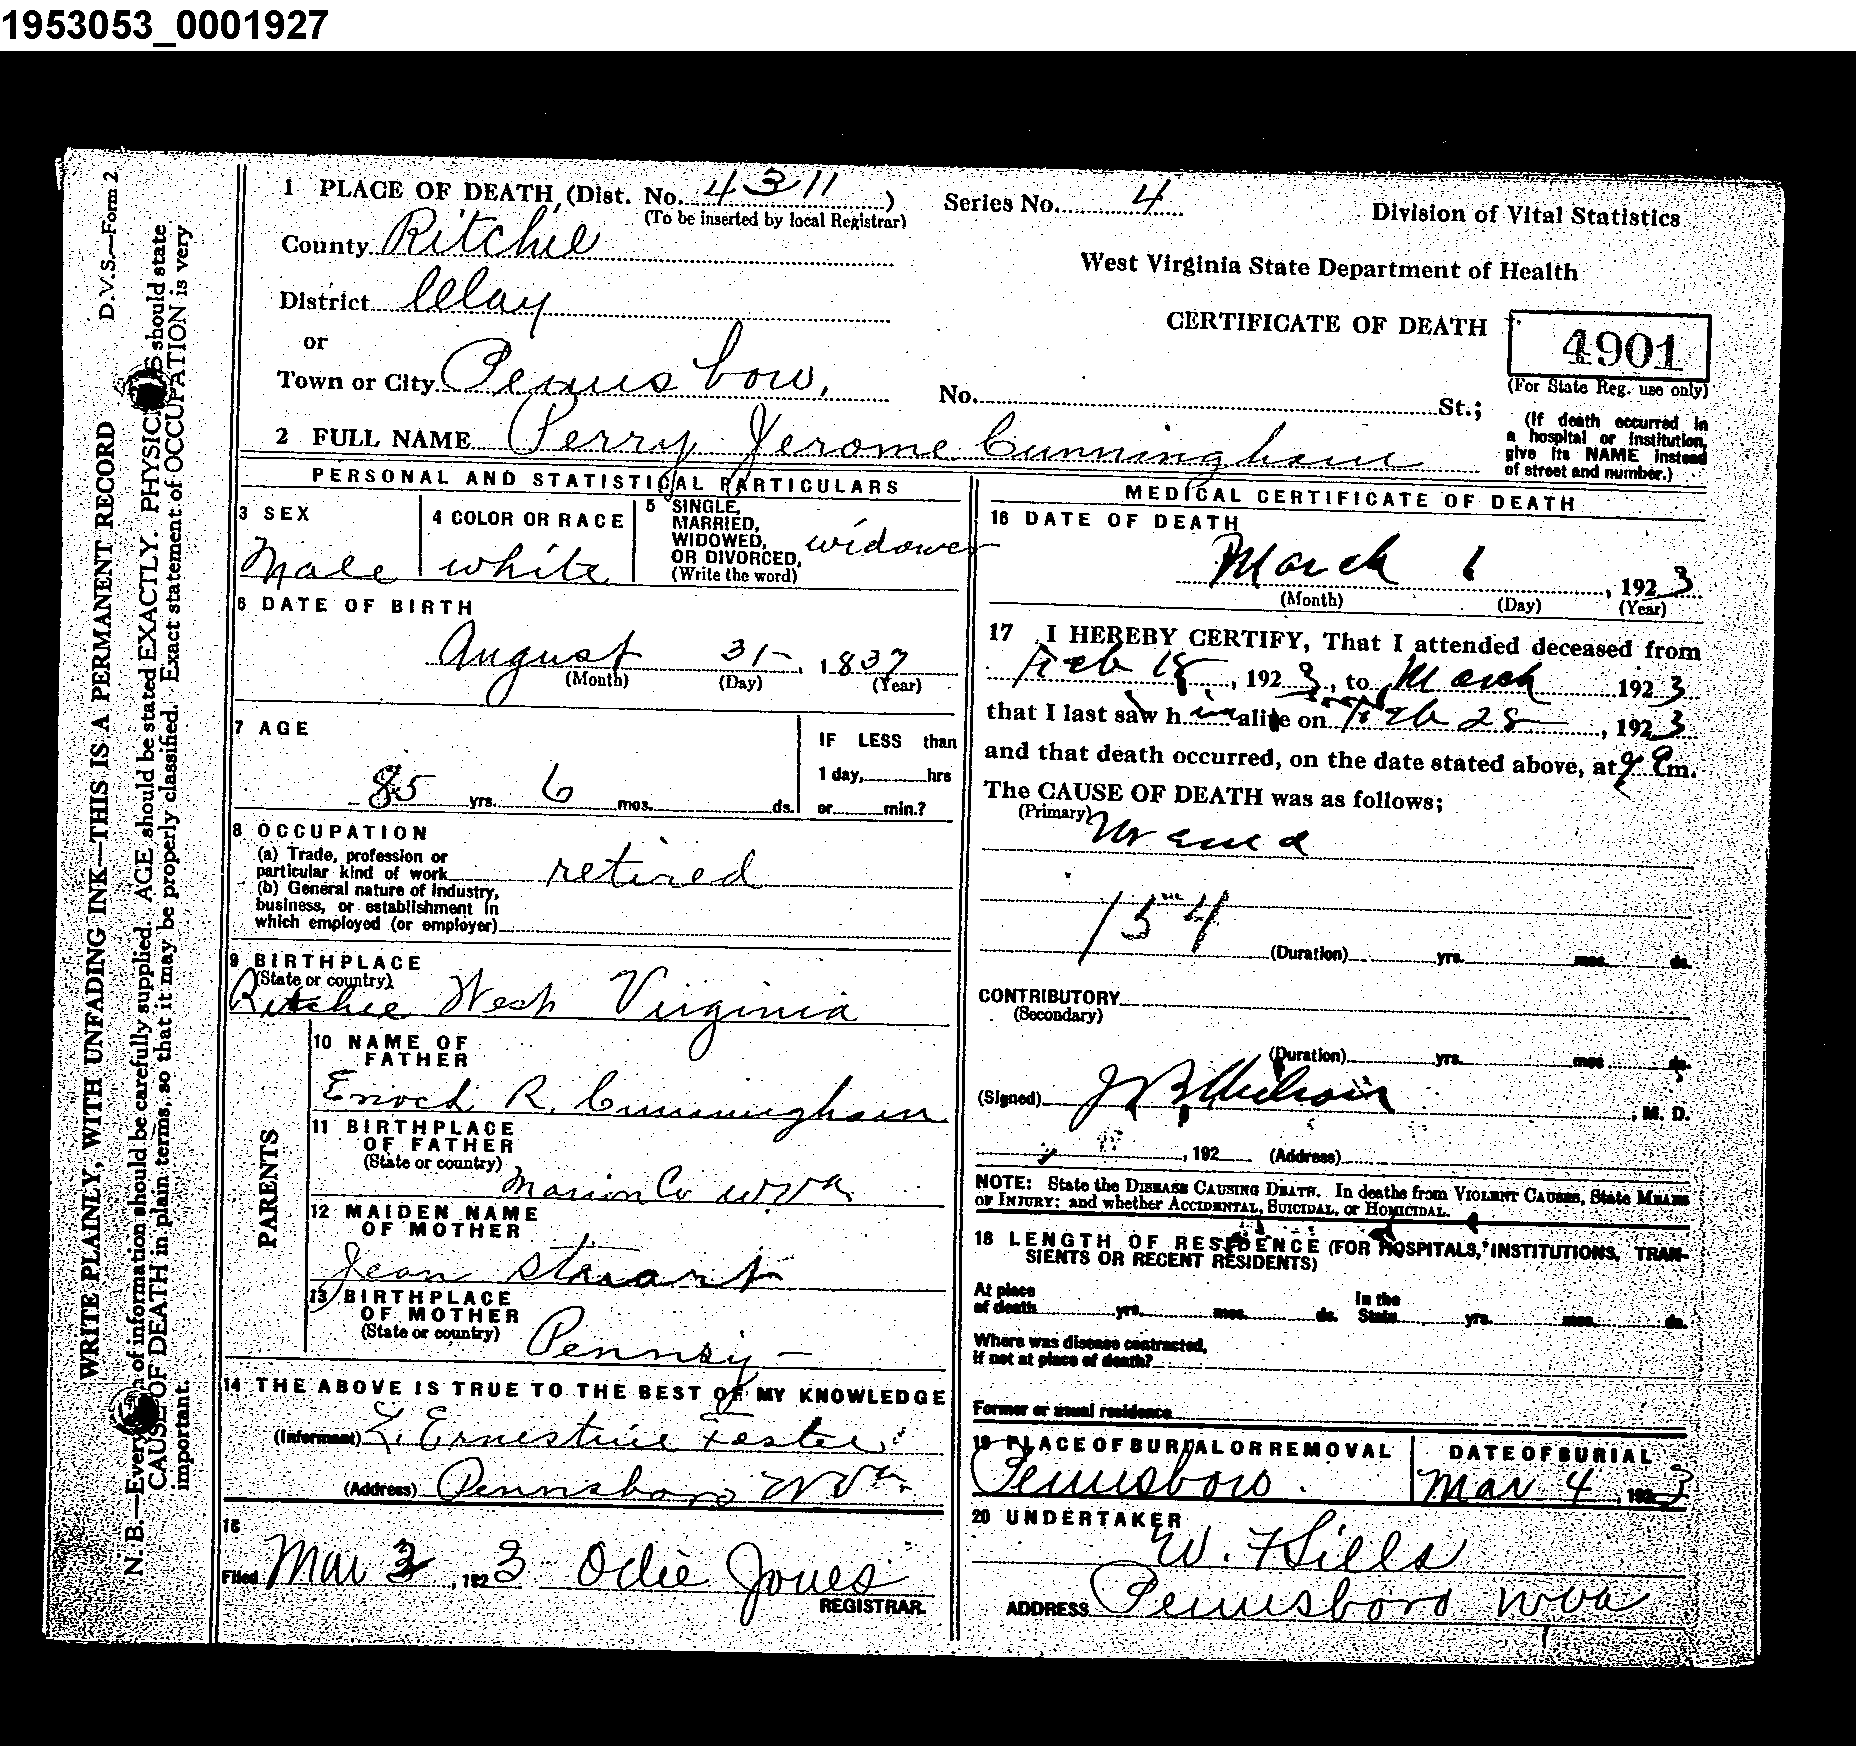 1953053_0001927
D.V.S.—Form 2
WRITE PLAINLY, WITH UNFADING INK—THIS IS A PERMANENT RECORD
N. B.—Every item of information should be carefully supplied. AGE should be stated EXACTLY. PHYSICIANS should state
CAUSE OF DEATH in plain terms, so that it may be properly classified. Exact statement of OCCUPATION is very
important.
1 PLACE OF DEATH, (Dist. No. 4311)
(To be inserted by local Registrar)
Series No. 4
Division of Vital Statistics
County Ritchie
West Virginia State Department of Health
District Clay
CERTIFICATE OF DEATH
4901
(For State Reg. use only)
or
Town or City Pennsboro,
No. St.;
(If death occurred in
a hospital or institution,
give its NAME instead
of street and number.)
2 FULL NAME Perry Jerome Cunningham
PERSONAL AND STATISTICAL PARTICULARS
3 SEX
Male
4 COLOR OR RACE
white
5 SINGLE,
MARRIED,
WIDOWED,
OR DIVORCED,
(Write the word)
widower
6 DATE OF BIRTH
August 31- , 1837
(Month) (Day) (Year)
7 AGE
85 yrs. 6 mos. ds.
IF LESS than
1 day, hrs
or min.?
8 OCCUPATION
(a) Trade, profession or
particular kind of work retired
(b) General nature of industry,
business, or establishment in
which employed (or employer)
9 BIRTHPLACE
(State or country)
Ritchie West Virginia
PARENTS
10 NAME OF
FATHER
Enoch R. Cunningham
11 BIRTHPLACE
OF FATHER
(State or country)
Marion Co W.Va
12 MAIDEN NAME
OF MOTHER
Jean Stewart
13 BIRTHPLACE
OF MOTHER
(State or country)
Pennsy-
14 THE ABOVE IS TRUE TO THE BEST OF MY KNOWLEDGE
(Informant) L. Ernestine Foster
(Address) Pennsboro W Va.
15
Filed Mar 3, 1923 Odie Jones
REGISTRAR
MEDICAL CERTIFICATE OF DEATH
16 DATE OF DEATH
March 1, 1923
(Month) (Day) (Year)
17 I HEREBY CERTIFY, That I attended deceased from
Feb 18, 1923, to March 1923
that I last saw him alive on Feb 28, 1923
and that death occurred, on the date stated above, at 9 Pm.
The CAUSE OF DEATH was as follows;
(Primary)
Uremia
154
(Duration) yrs. mos. ds.
CONTRIBUTORY
(Secondary)
(Duration) yrs. mos. ds.
(Signed) , M. D.
, 192 (Address)
NOTE: State the DISEASE CAUSING DEATH. In deaths from VIOLENT CAUSES, State MEANS
OF INJURY; and whether ACCIDENTAL, SUICIDAL, or HOMICIDAL.
18 LENGTH OF RESIDENCE (FOR HOSPITALS, INSTITUTIONS, TRAN-
SIENTS OR RECENT RESIDENTS)
At place
of death yrs. mos. ds.
In the
State yrs. mos. ds.
Where was disease contracted,
If not at place of death?
Former or usual residence
19 PLACE OF BURIAL OR REMOVAL
Pennsboro.
DATE OF BURIAL
Mar 4, 1923
20 UNDERTAKER
W. F Hills
ADDRESS Pennsboro W Va